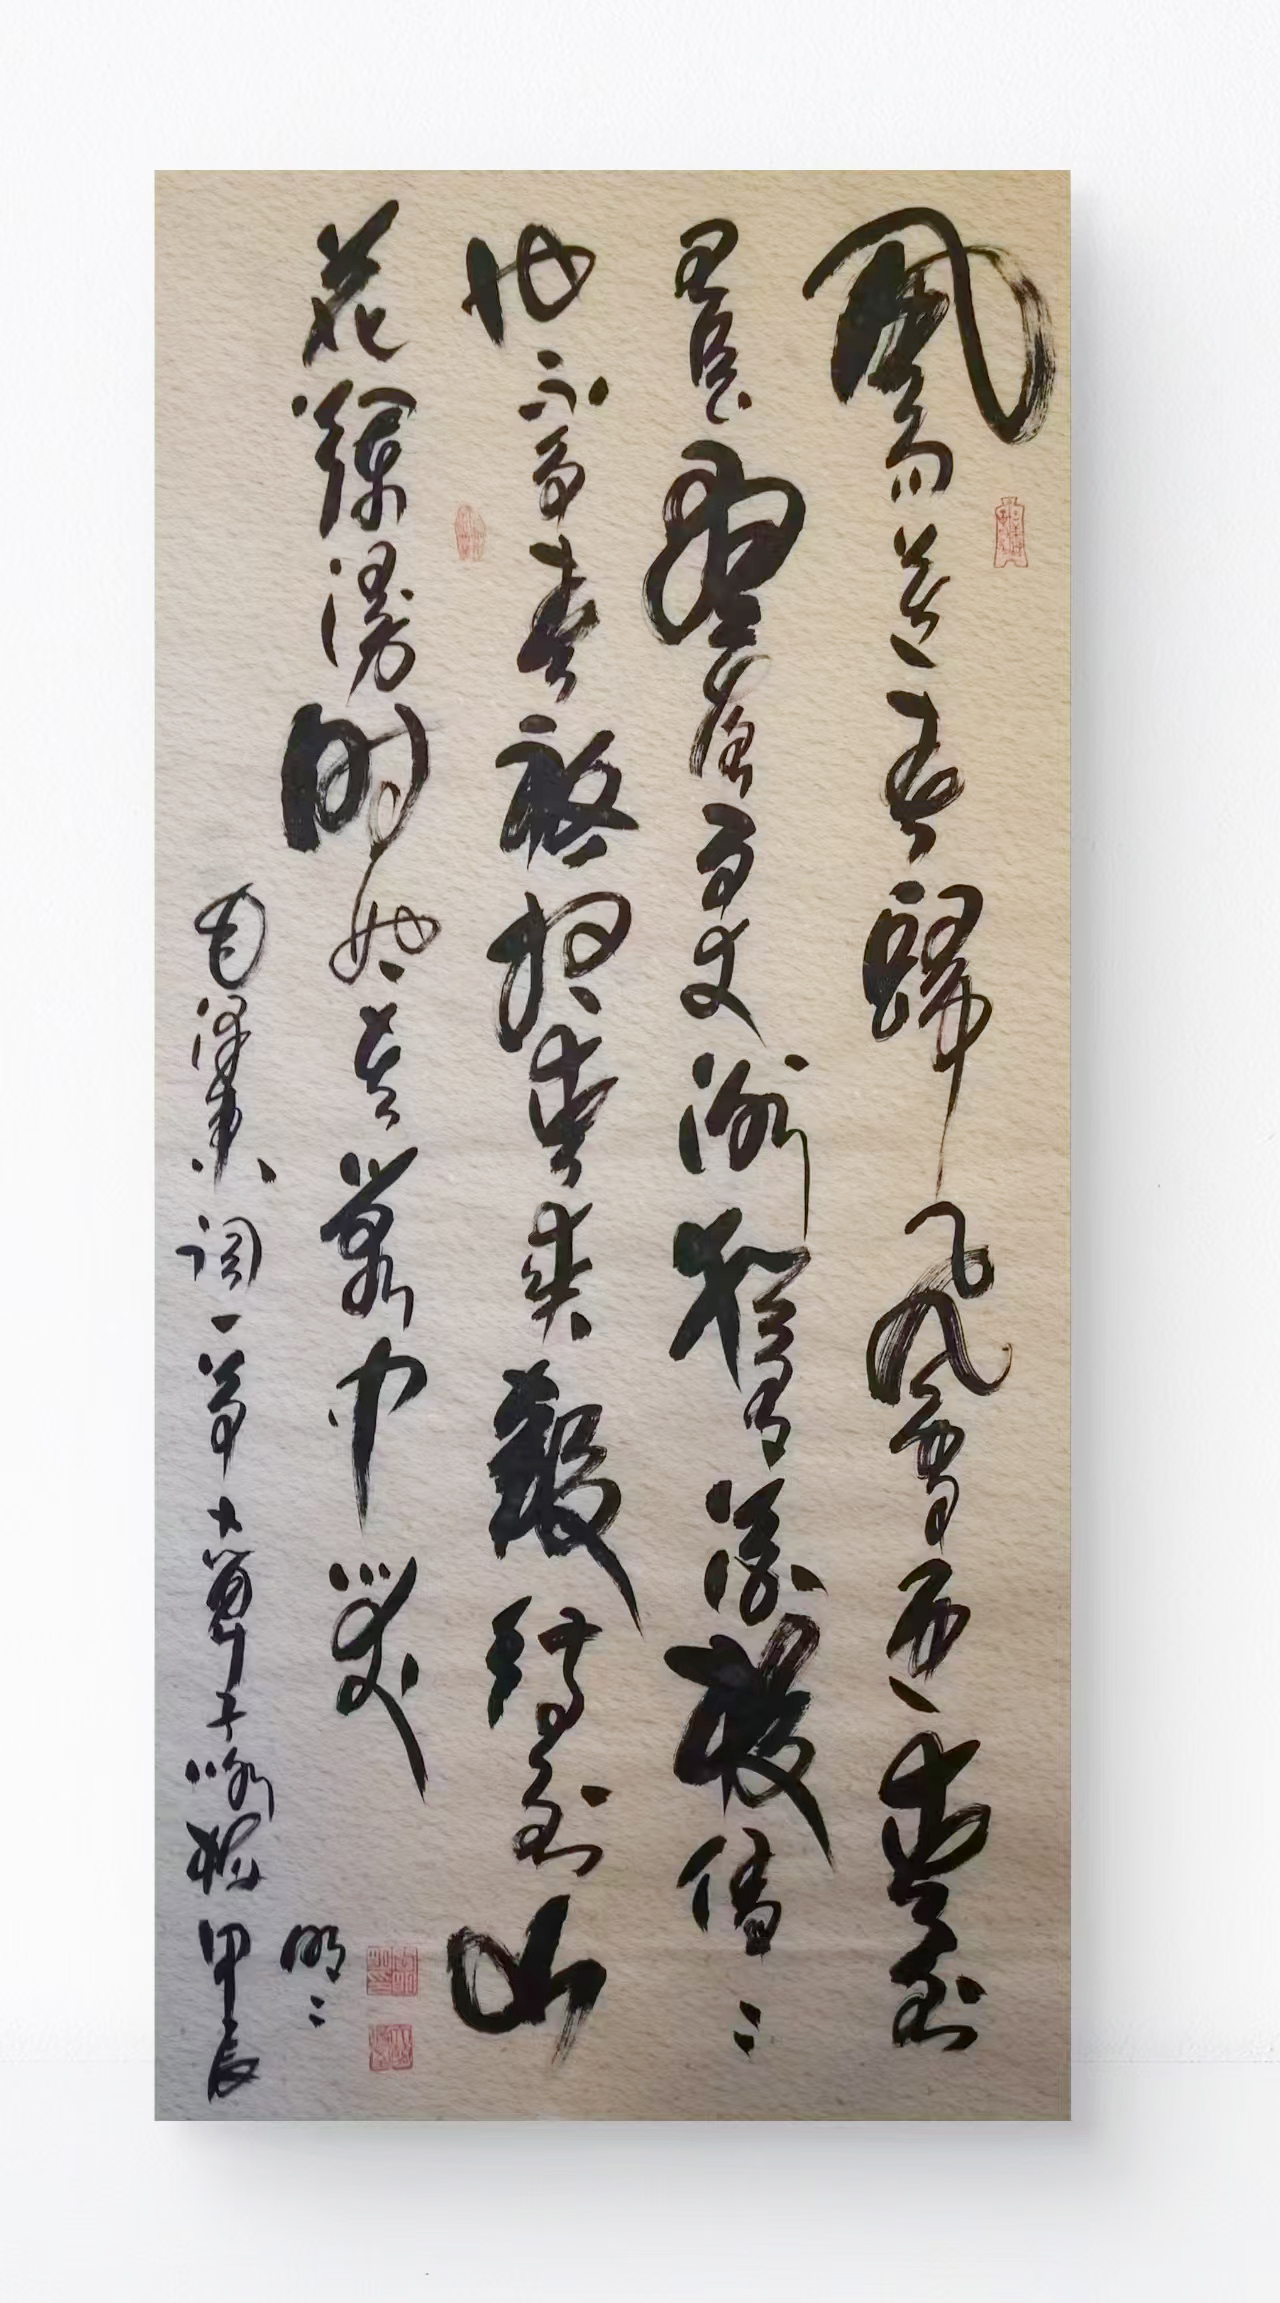 風雨送春歸飛雪迎春到
已是懸崖百丈冰猶有花枝俏〻
也不爭春祇把春來報待到山
花爛漫時她在叢中笑
毛澤東詞一首卜算子咏梅甲辰
明〻